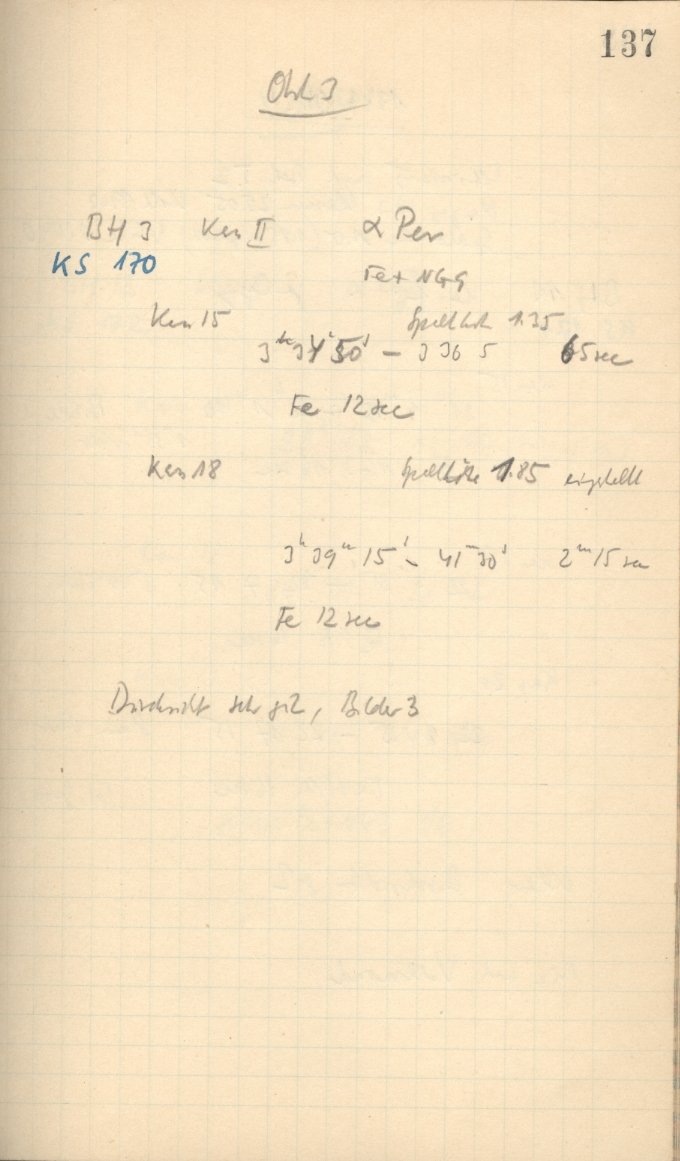 137
Okt 3
BH 3 Ken II α Per
KS 170 Fe + NGG
Ken 15 Spalthöhe 1.35
3h 34 50s – 3 36 5 65 sec
Fe 12 sec
Ken 18 Spalthöhe 1.85 eingestellt
3h 39m 15s – 41m 30s 2m 15 sec
Fe 12 sec
Durchsicht sehr gut, Bilder 3